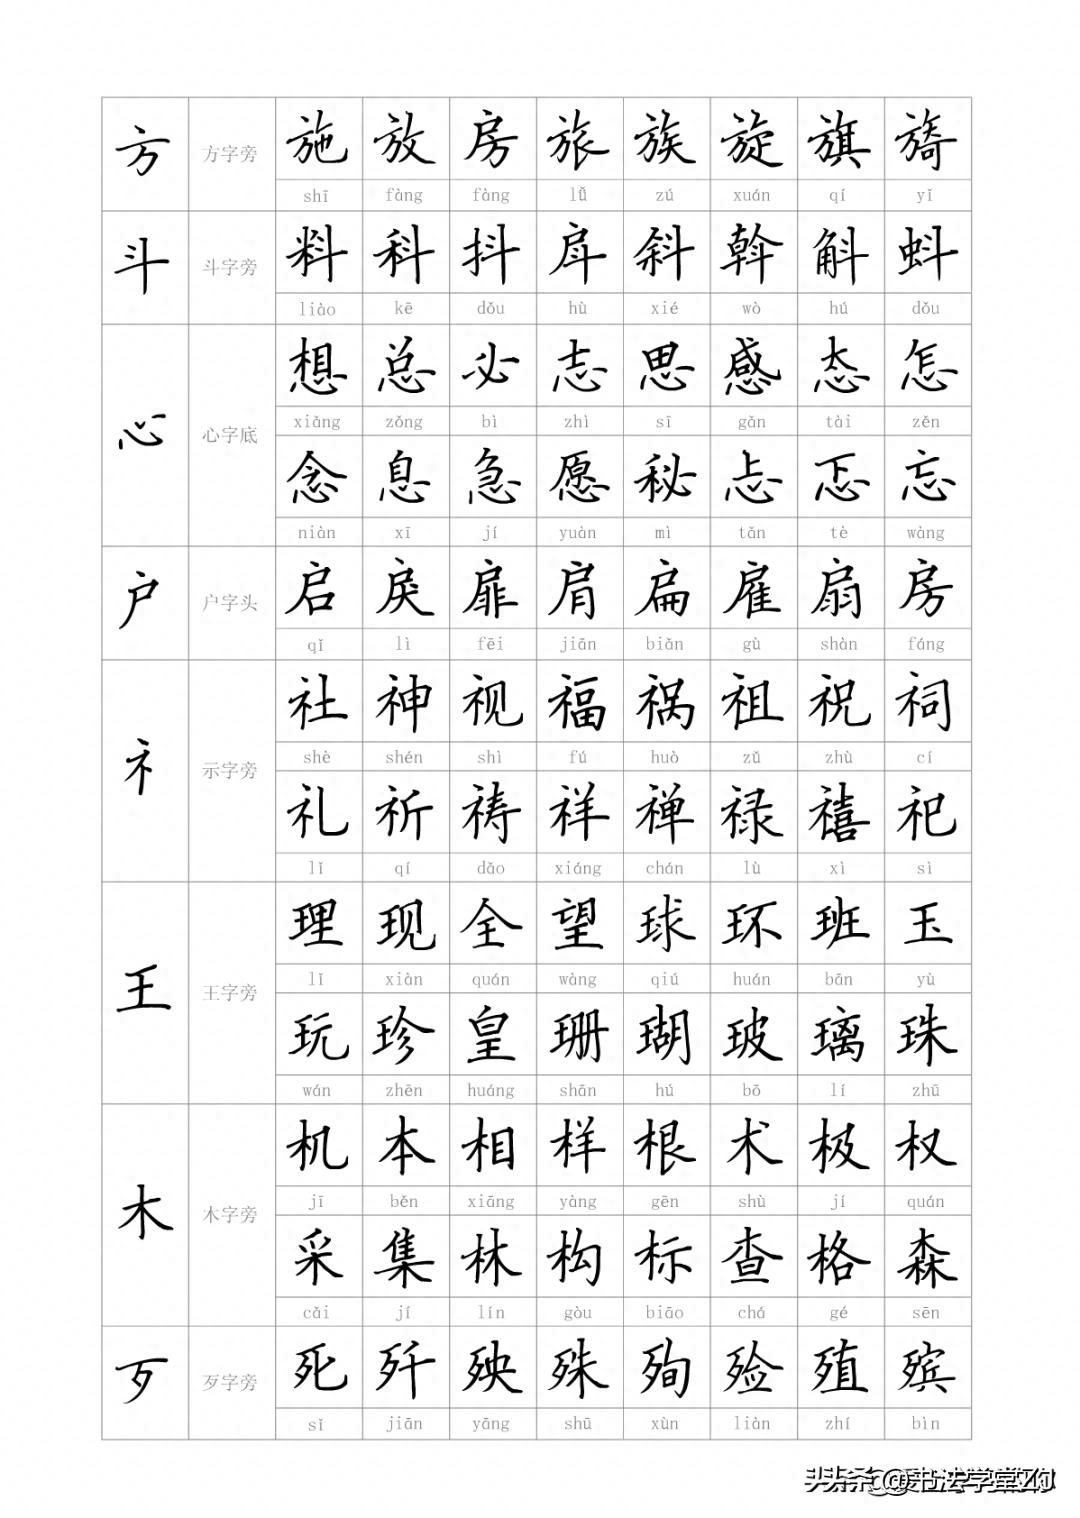 方 方字旁 施 放 房 旅 族 旋 旗 旖
shī fàng fàng lǚ zú xuán qí yǐ
斗 斗字旁 料 科 抖 戽 斜 斡 斛 蚪
liào kē dǒu hù xié wò hú dǒu
心 心字底 想 总 必 志 思 感 态 怎
xiǎng zǒng bì zhì sī gǎn tài zěn
念 息 急 愿 秘 忐 忑 忘
niàn xī jí yuàn mì tǎn tè wàng
户 户字头 启 戾 扉 肩 扁 雇 扇 房
qǐ lì fēi jiān biǎn gù shàn fáng
礻 示字旁 社 神 视 福 祸 祖 祝 祠
shè shén shì fú huò zǔ zhù cí
礼 祈 祷 祥 禅 禄 禧 祀
lǐ qí dǎo xiáng chán lù xì sì
王 王字旁 理 现 全 望 球 环 班 玉
lǐ xiàn quán wàng qiú huán bān yù
玩 珍 皇 珊 瑚 玻 璃 珠
wán zhēn huáng shān hú bō lí zhū
木 木字旁 机 本 相 样 根 术 极 权
jī běn xiāng yàng gēn shù jí quán
采 集 林 构 标 查 格 森
cǎi jí lín gòu biāo chá gé sēn
歹 歹字旁 死 歼 殃 殊 殉 殓 殖 殡
sǐ jiān yāng shū xùn liàn zhí bìn